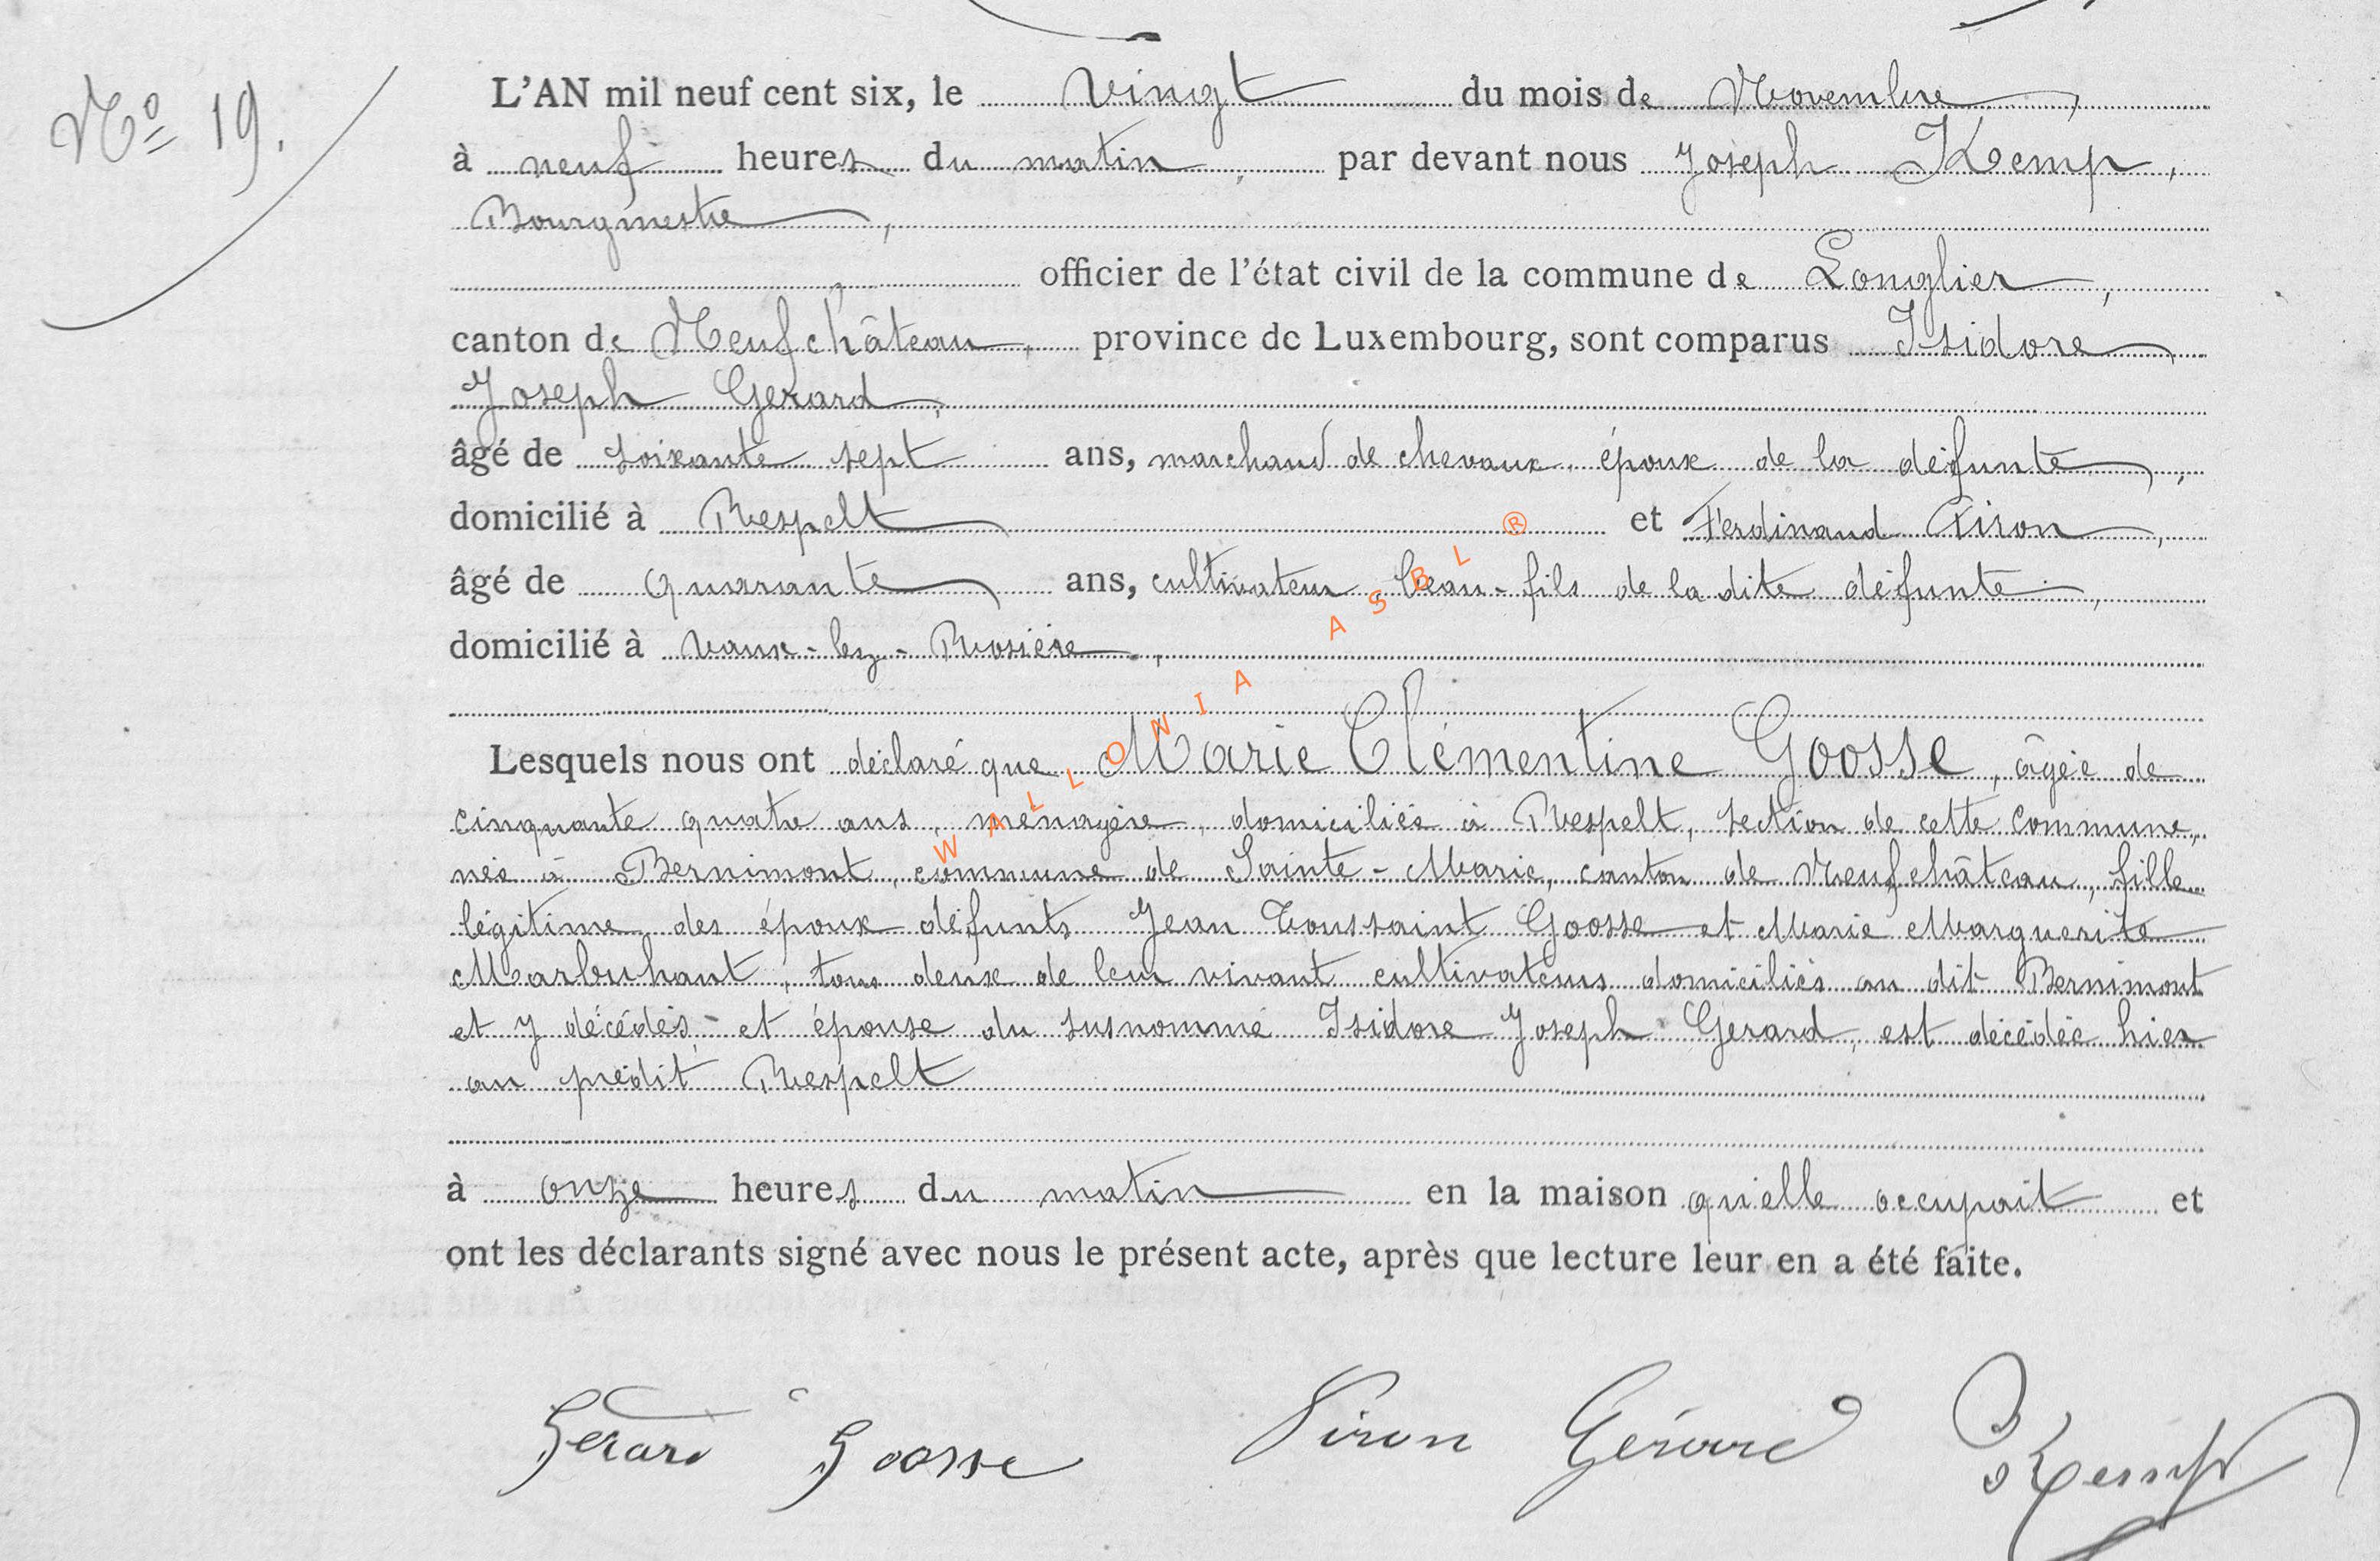 Nº 19.
L'AN mil neuf cent six, le vingt du mois de Novembre,
à neuf heures du matin, par devant nous Joseph Kemp,
Bourgmestre,
officier de l'état civil de la commune de Longlier,
canton de Neufchâteau, province de Luxembourg, sont comparus Isidore
Joseph Gerard,
âgé de soixante sept ans, marchand de chevaux, époux de la défunte,
domicilié à Respelt et Ferdinand Piron,
âgé de quarante ans, cultivateur, beau-fils de la dite défunte,
domicilié à Vaux-lez-Rosière,
Lesquels nous ont déclaré que Marie Clémentine Goosse, âgée de
cinquante quatre ans, ménagère, domiciliée à Respelt, section de cette commune,
née à Bernimont, commune de Sainte-Marie, canton de Neufchâteau, fille
légitime des époux défunts Jean Toussaint Goosse et Marie Marguerite
Marbuhant, tous deux de leur vivant cultivateurs domiciliés au dit Bernimont
et y décédés, - et épouse du susnommé Isidore Joseph Gerard, est décédée hier
au prédit Respelt
à onze heures du matin en la maison qu'elle occupait et
ont les déclarants signé avec nous le présent acte, après que lecture leur en a été faite.
Gerard Goosse Piron Gérard Kemp
WALLONIA ASBL ®